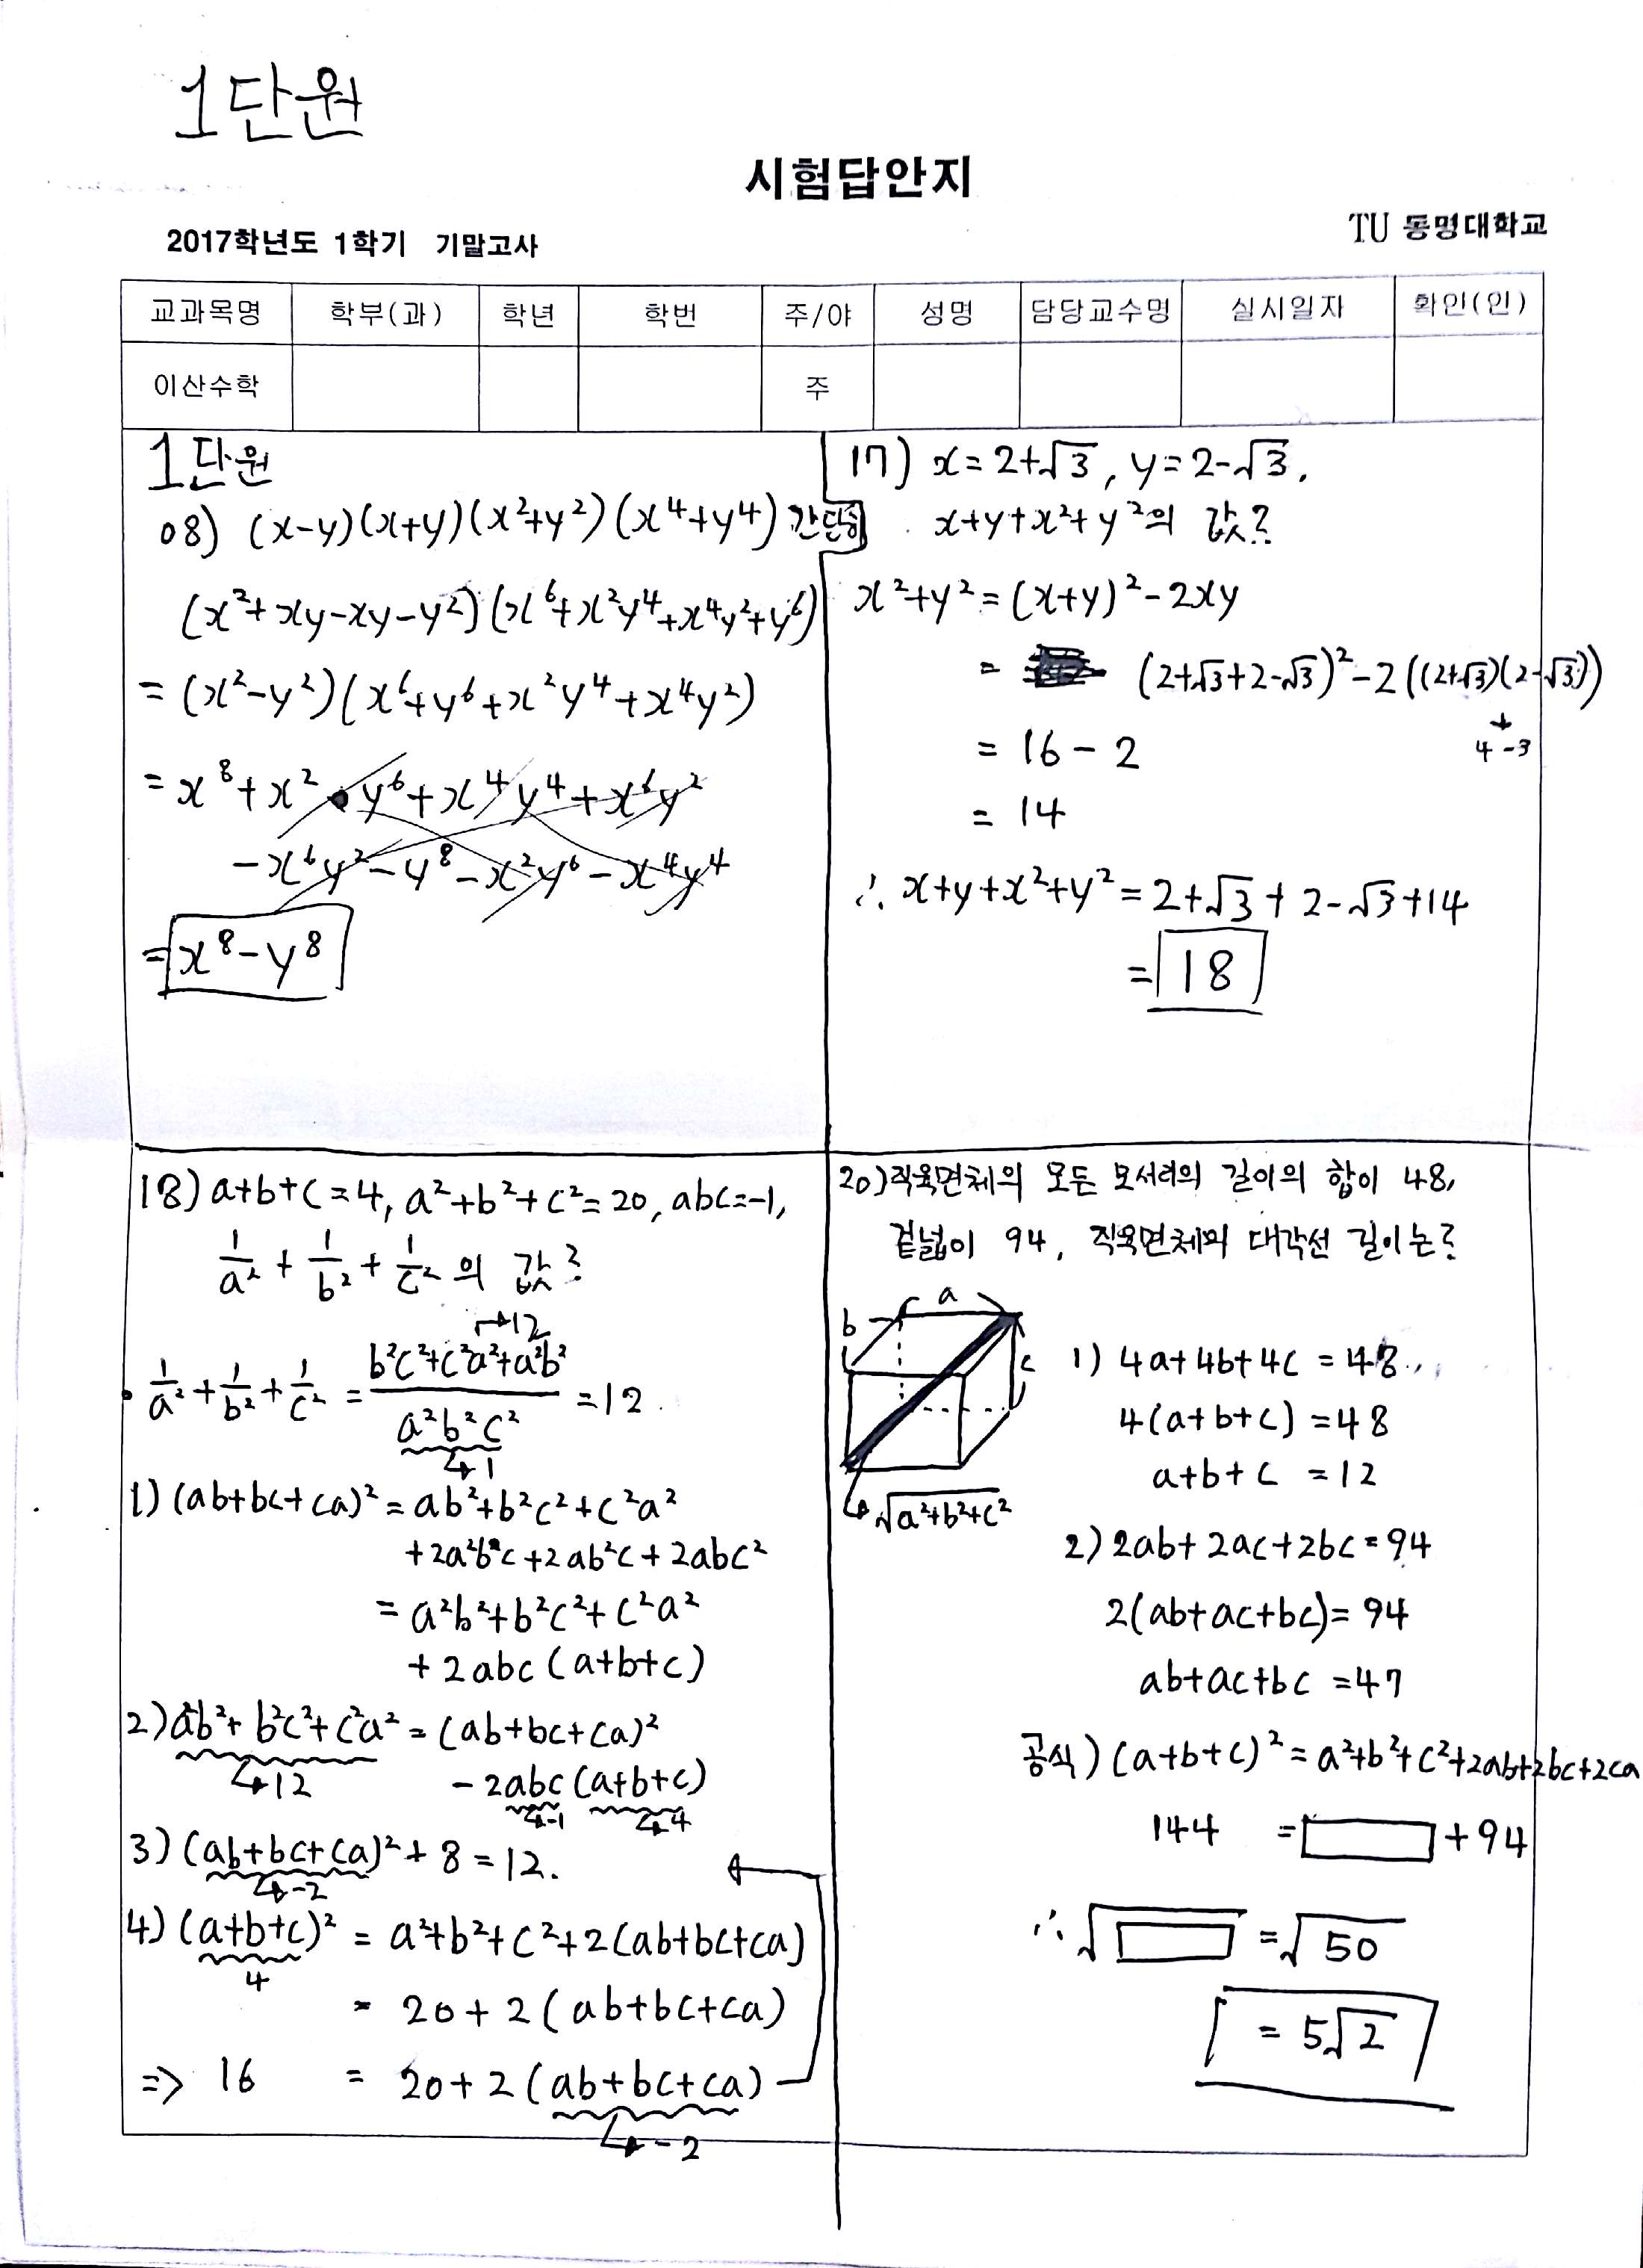 1단원
시험답안지
2017학년도 1학기 기말고사
TU 동명대학교
교과목명 학부(과) 학년 학번 주/야 성명 담당교수명 실시일자 확인(인)
이산수학 주
1단원
08) (x-y)(x+y)(x²+y²)(x⁴+y⁴) 간단히
(x²+xy-xy-y²)(x⁶+x²y⁴+x⁴y²+y⁶)
= (x²-y²)(x⁶+y⁶+x²y⁴+x⁴y²)
= x⁸+x²y⁶+x⁴y⁴+x⁶y²
-x⁶y²-y⁸-x²y⁶-x⁴y⁴
= x⁸-y⁸
17) x=2+√3, y=2-√3.
x+y+x²+y²의 값?
x²+y²=(x+y)²-2xy
= (2+√3+2-√3)²-2((2+√3)(2-√3))
4-3
= 16-2
= 14
∴ x+y+x²+y²=2+√3+2-√3+14
= 18
18) a+b+c=4, a²+b²+c²=20, abc=-1,
1/a² + 1/b² + 1/c² 의 값?
→12
• 1/a² + 1/b² + 1/c² = (b²c²+c²a²+a²b²)/(a²b²c²) = 12.
↳1
1) (ab+bc+ca)² = ab²+b²c²+c²a²
+2a²b²c+2ab²c+2abc²
= a²b²+b²c²+c²a²
+2abc(a+b+c)
2) ab²+b²c²+c²a² = (ab+bc+ca)²
↳12 -2abc(a+b+c)
↳-1 ↳4
3) (ab+bc+ca)²+8=12.
↳-2
4) (a+b+c)² = a²+b²+c²+2(ab+bc+ca)
4
= 20+2(ab+bc+ca)
=> 16 = 20+2(ab+bc+ca)
↳-2
20) 직육면체의 모든 모서리의 길이의 합이 48,
겉넓이 94, 직육면체의 대각선 길이는?
a
b
c
↳√a²+b²+c²
1) 4a+4b+4c=48
4(a+b+c)=48
a+b+c =12
2) 2ab+2ac+2bc=94
2(ab+ac+bc)=94
ab+ac+bc =47
공식) (a+b+c)²=a²+b²+c²+2ab+2bc+2ca
144 = □ +94
∴ √□ = √50
= 5√2